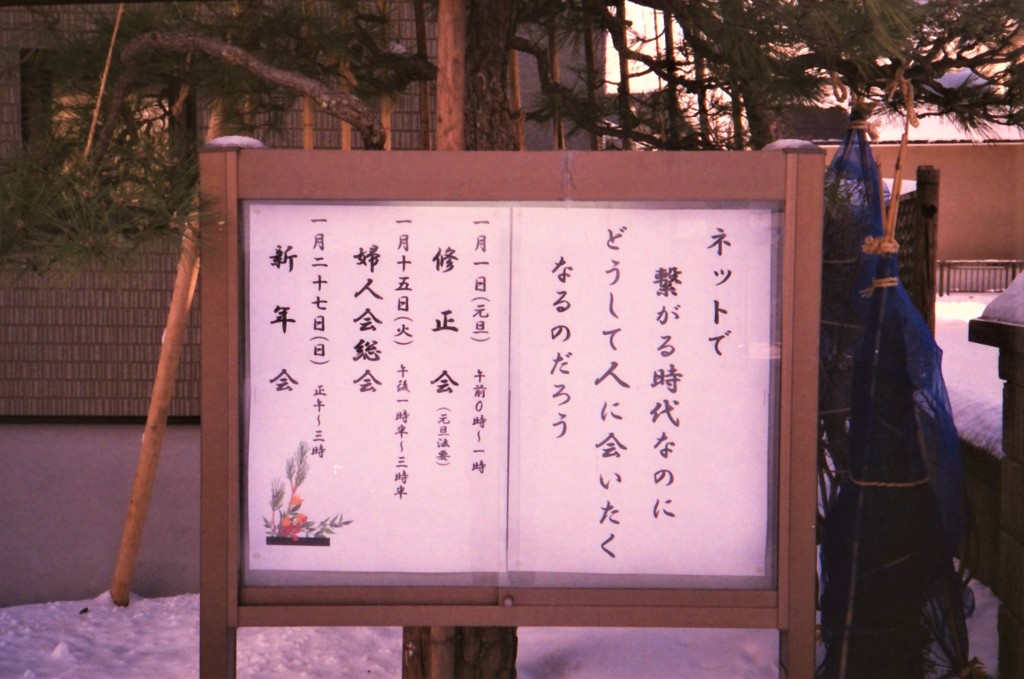 ネットで
繋がる時代なのに
どうして人に会いたく
なるのだろう
一月一日(元旦) 午前0時～一時
修正会(元旦法要)
一月十五日(火) 午後一時半～三時半
婦人会総会
一月二十七日(日) 正午～三時
新年会